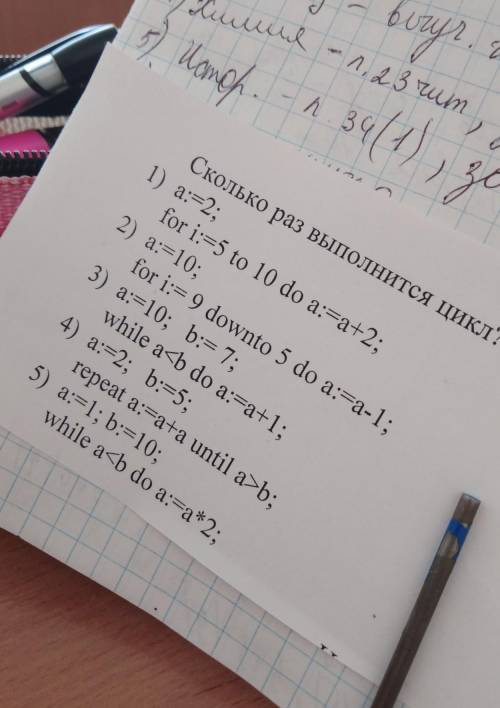 Химия - п.23 чит,
5) Истор. - п. 34(1),
Сколько раз выполнится цикл?
1) a:=2;
for i:=5 to 10 do a:=a+2;
2) a:=10;
for i:= 9 downto 5 do a:=a-1;
3) a:=10; b:= 7;
while a<b do a:=a+1;
4) a:=2; b:=5;
repeat a:=a+a until a>b;
5) a:=1; b:=10;
while a<b do a:=a*2;